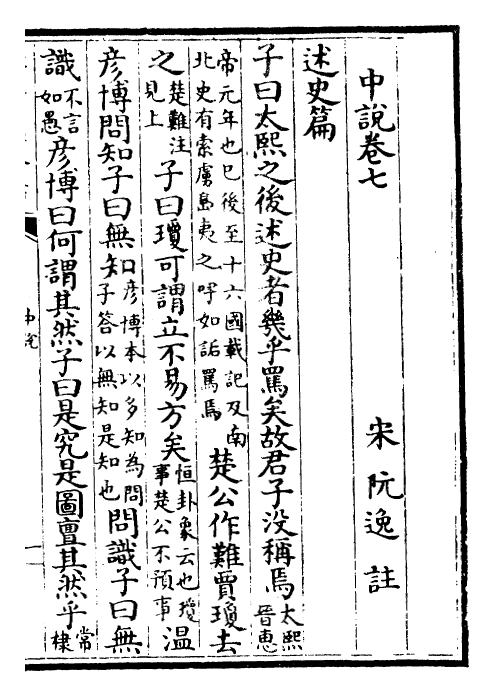 中說卷七
宋阮逸註
述史篇
子曰太熙之後述史者幾乎罵矣故君子没稱焉太熙晉惠
帝元年也巳後至十六國載記及南北史有索虜島夷之呼如詬罵焉楚公作難賈瓊去
之楚難注見上子曰瓊可謂立不易方矣恒卦象云也瓊事楚公不預事溫
彦博問知子曰無知彦博本以多知為問子答以無知是知也問識子曰無
識不言如愚彦博曰何謂其然子曰是究是圖亶其然乎常棣
中說